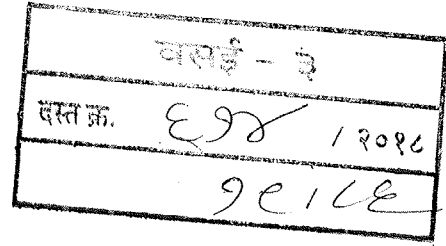 वसई - ३
दस्त क्र. ६१४ / २०१८
१८ / ८६